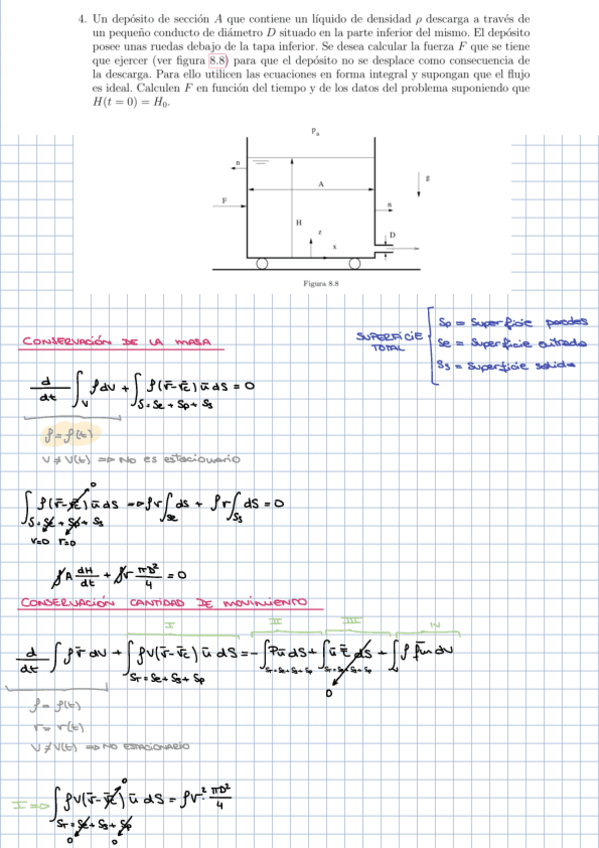 4. Un depósito de sección A que contiene un líquido de densidad ρ descarga a través de
un pequeño conducto de diámetro D situado en la parte inferior del mismo. El depósito
posee unas ruedas debajo de la tapa inferior. Se desea calcular la fuerza F que se tiene
que ejercer (ver figura 8.8) para que el depósito no se desplace como consecuencia de
la descarga. Para ello utilicen las ecuaciones en forma integral y supongan que el flujo
es ideal. Calculen F en función del tiempo y de los datos del problema suponiendo que
H(t = 0) = H₀.
Pₐ
n
g
A
F
n
H
D
z
x
Figura 8.8
CONSERVACIÓN DE LA MASA
SUPERFICIE TOTAL
Sp = Superficie paredes
Se = Superficie entrada
Ss = Superficie salida
d/dt ∫_V ρ dV + ∫_{S=Se+Sp+Ss} ρ(v̄-v̄c) n̄ dS = 0
ρ = ρ(t)
V ≠ V(t) ⇒ No es estacionario
∫_{S=Se+Sp+Ss} ρ(v̄-v̄c) n̄ dS → ρv ∫_{Se} dS + ρv ∫_{Ss} dS = 0
v=0 v=0
ρA dH/dt + ρv πD²/4 = 0
CONSERVACIÓN CANTIDAD DE MOVIMIENTO
I II III IV
d/dt ∫ ρ v̄ dV + ∫_{ST=Se+Ss+Sp} ρv(v̄-v̄c) n̄ dS = -∫_{ST=Se+Ss+Sp} P n̄ dS + ∫_{ST=Se+Ss+Sp} n̄ τ̄ dS + ∫ ρ f̄m dV
0
ρ = ρ(t)
v = v(t)
V ≠ V(t) ⇒ NO ESTACIONARIO
I ⇒ ∫_{ST=Se+Ss+Sp} ρv(v̄-v̄c) n̄ dS = ρv² · πD²/4
0 0